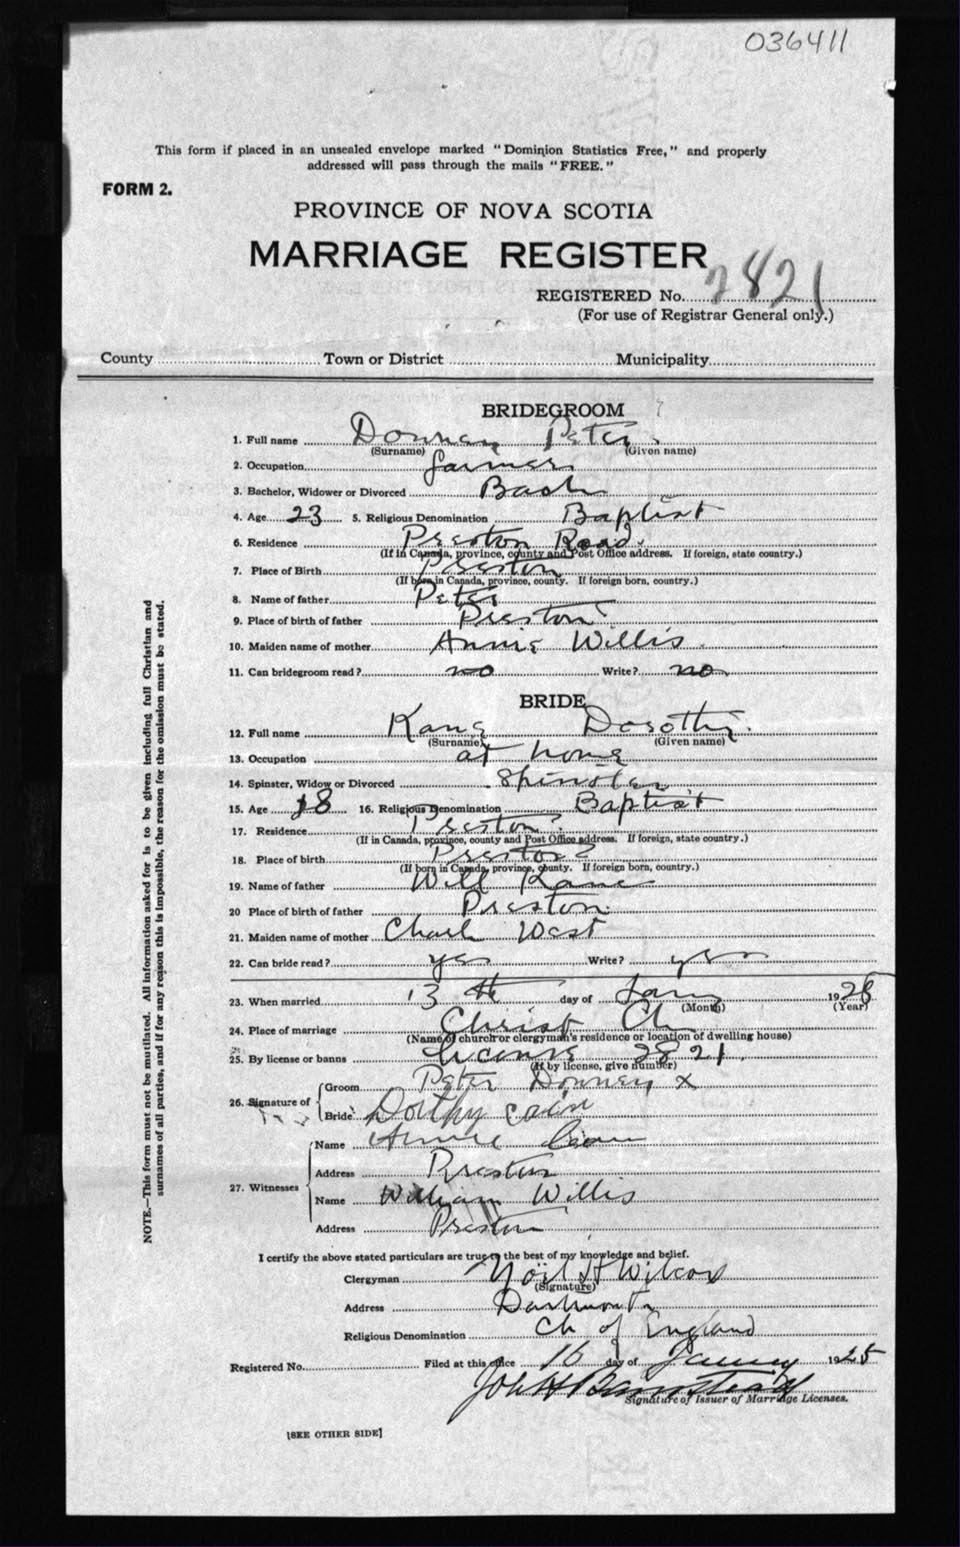 036411
This form if placed in an unsealed envelope marked "Dominion Statistics Free," and properly
addressed will pass through the mails "FREE."
FORM 2.
PROVINCE OF NOVA SCOTIA
MARRIAGE REGISTER
REGISTERED No. 2821
(For use of Registrar General only.)
County Town or District Municipality
BRIDEGROOM
1. Full name Downey Peter
(Surname) (Given name)
2. Occupation farmer
3. Bachelor, Widower or Divorced Bach
4. Age 23 5. Religious Denomination Baptist
6. Residence Preston Road
(If in Canada, province, county and Post Office address. If foreign, state country.)
7. Place of Birth Preston
(If born in Canada, province, county. If foreign born, country.)
8. Name of father Peter
9. Place of birth of father Preston
10. Maiden name of mother Annie Willis
11. Can bridegroom read? no Write? no
BRIDE
12. Full name Kane Dorothy
(Surname) (Given name)
13. Occupation at home
14. Spinster, Widow or Divorced Spinster
15. Age 18 16. Religious Denomination Baptist
17. Residence Preston
(If in Canada, province, county and Post Office address. If foreign, state country.)
18. Place of birth Preston
(If born in Canada, province, county. If foreign born, country.)
19. Name of father Will Kane
20 Place of birth of father Preston
21. Maiden name of mother Charl West
22. Can bride read? yes Write? yes
23. When married 13th day of Jany 19
(Month) (Year)
24. Place of marriage Christ Ch
(Name of church or clergyman's residence or location of dwelling house)
25. By license or banns License 2821
(If by license, give number)
26. Signature of Groom Peter Downey X
Bride Dorthy cain
27. Witnesses Name Annie
Address Preston
Name William Willis
Address Preston
I certify the above stated particulars are true to the best of my knowledge and belief.
Clergyman Noel H Wilcox
(Signature)
Address Dartmouth
Religious Denomination Ch of England
Registered No. Filed at this office 16 day of January 1925
Signature of Issuer of Marriage Licenses.
[SEE OTHER SIDE]
NOTE.—This form must not be mutilated. All information asked for is to be given including full Christian and
surnames of all parties, and if for any reason this is impossible, the reason for the omission must be stated.